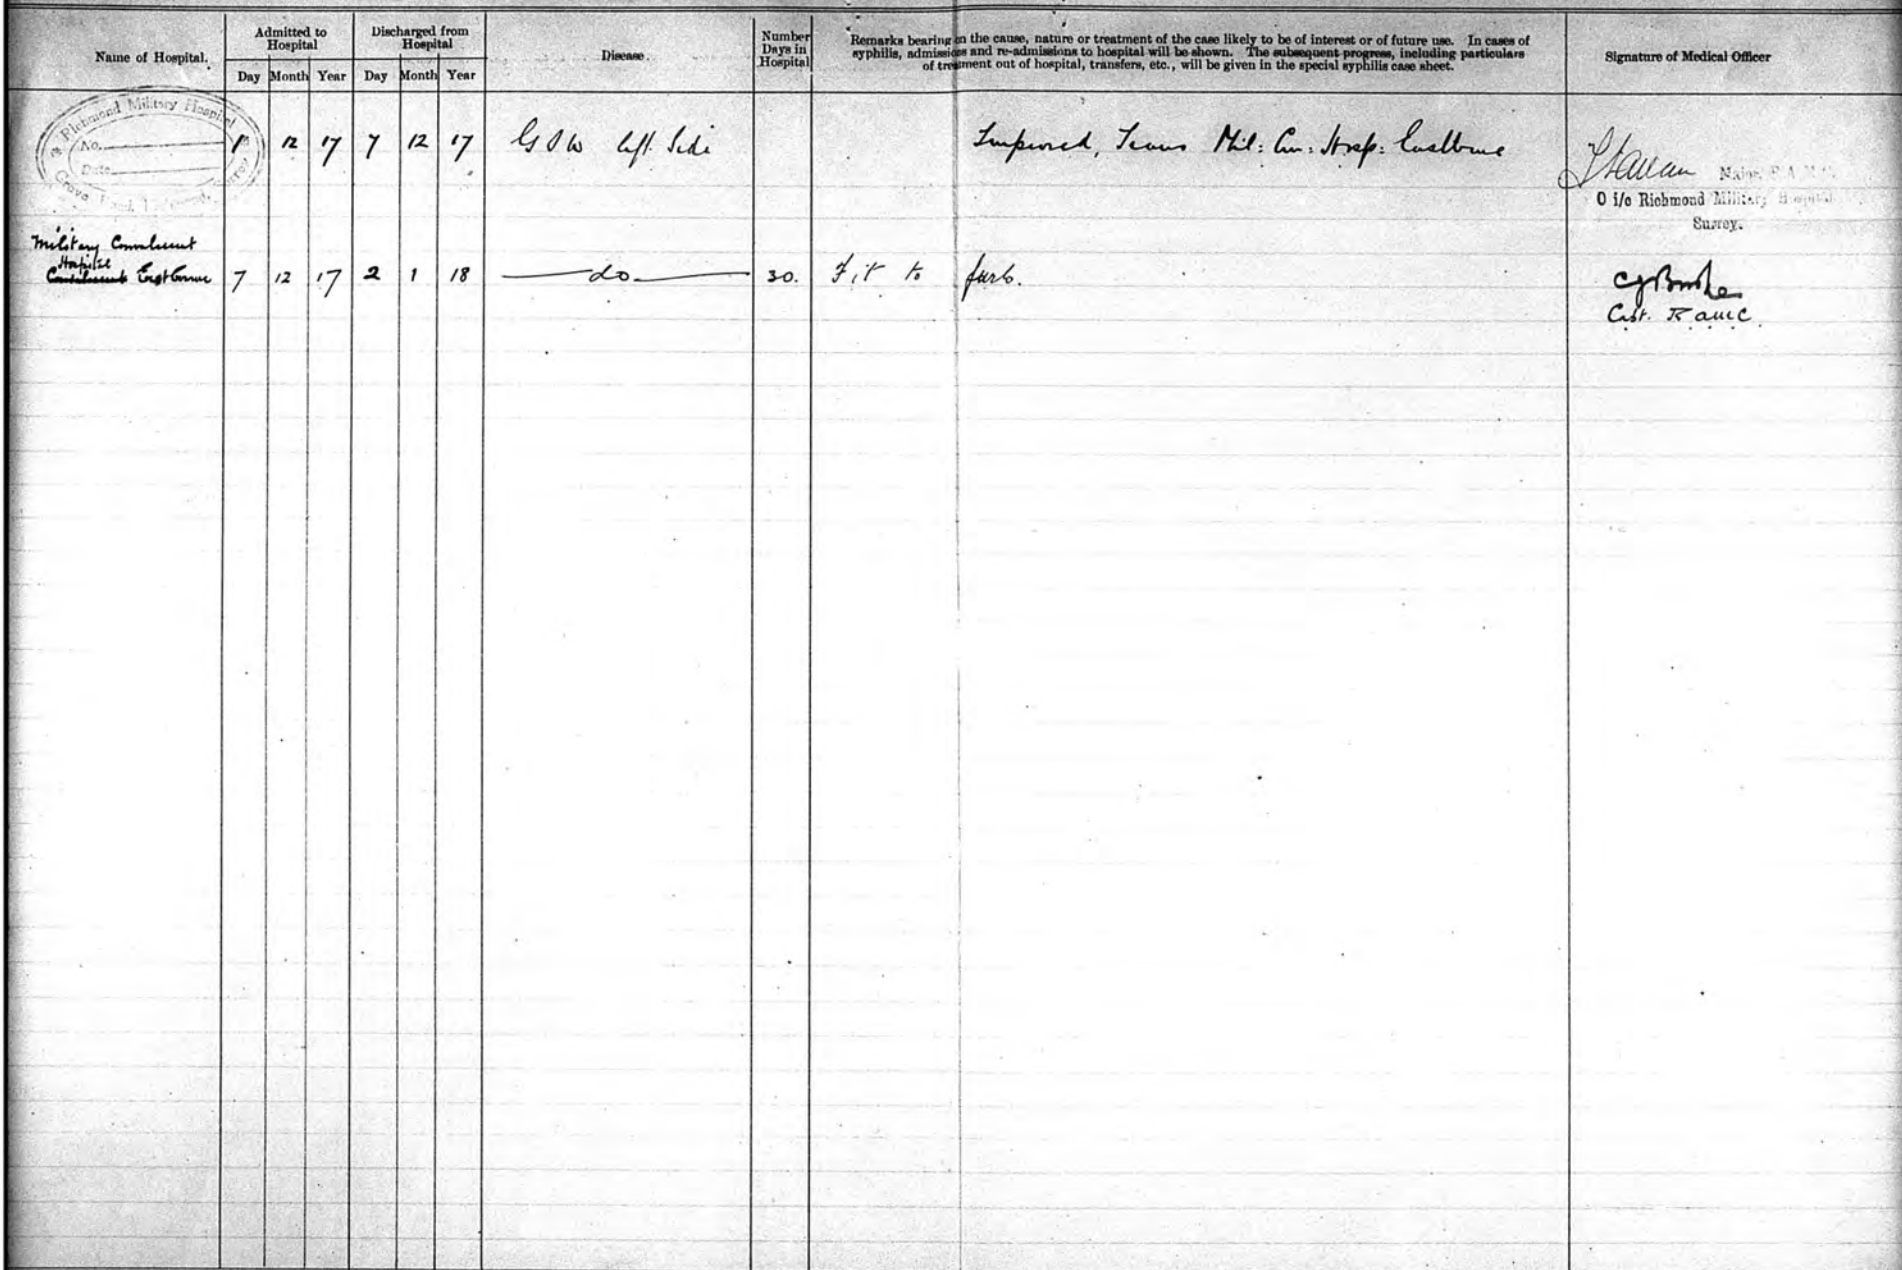 Name of Hospital.
Admitted to Hospital
Discharged from Hospital
Day Month Year Day Month Year
Disease.
Number Days in Hospital
Remarks bearing on the cause, nature or treatment of the case likely to be of interest or of future use. In cases of
syphilis, admissions and re-admissions to hospital will be shown. The subsequent progress, including particulars
of treatment out of hospital, transfers, etc., will be given in the special syphilis case sheet.
Signature of Medical Officer
Richmond Military Hospital
No.
Date
Grove Road, Richmond, Surrey
1 12 17 7 12 17 G S W left Side Improved, Trans Mil: Con: Hosp: Eastbourne
Major R.A.M.C.
O i/c Richmond Military Hospital
Surrey.
Military Convalescent
Hospital
Eastbourne 7 12 17 2 1 18 do 30. Fit to furlo.
Capt. RAMC.